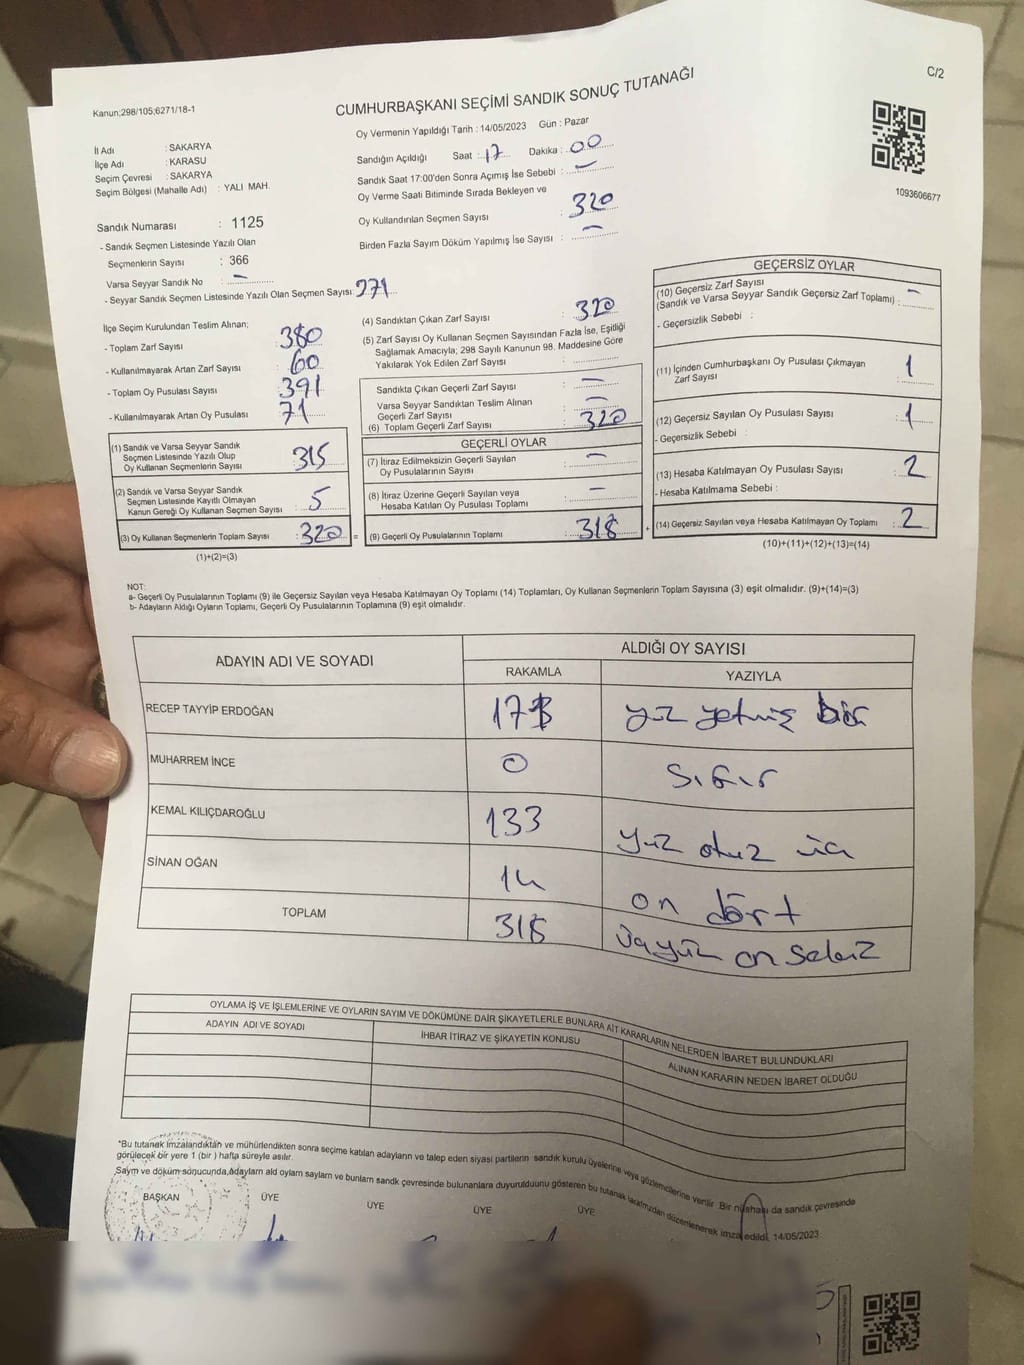 C/2
Kanun;298/105;6271/18-1
CUMHURBAŞKANI SEÇİMİ SANDIK SONUÇ TUTANAĞI
Oy Vermenin Yapıldığı Tarih : 14/05/2023 Gün : Pazar
İl Adı : SAKARYA
İlçe Adı : KARASU
Seçim Çevresi : SAKARYA
Seçim Bölgesi (Mahalle Adı) : YALI MAH.
Sandığın Açıldığı Saat : 17 Dakika : 00
Sandık Saat 17:00'den Sonra Açımış İse Sebebi : –
Oy Verme Saati Bitiminde Sırada Bekleyen ve
Oy Kullandırılan Seçmen Sayısı : 320
Birden Fazla Sayım Döküm Yapılmış İse Sayısı : –
1093606677
Sandık Numarası : 1125
- Sandık Seçmen Listesinde Yazılı Olan
Seçmenlerin Sayısı : 366
Varsa Seyyar Sandık No : –
- Seyyar Sandık Seçmen Listesinde Yazılı Olan Seçmen Sayısı:
İlçe Seçim Kurulundan Teslim Alınan;
- Toplam Zarf Sayısı : 380
- Kullanılmayarak Artan Zarf Sayısı : 60
- Toplam Oy Pusulası Sayısı : 391
- Kullanılmayarak Artan Oy Pusulası : 71
(1) Sandık ve Varsa Seyyar Sandık
Seçmen Listesinde Yazılı Olup
Oy Kullanan Seçmenlerin Sayısı : 315
(2) Sandık ve Varsa Seyyar Sandık
Seçmen Listesinde Kayıtlı Olmayan
Kanun Gereği Oy Kullanan Seçmen Sayısı : 5
(3) Oy Kullanan Seçmenlerin Toplam Sayısı : 320 =
(1)+(2)=(3)
(4) Sandıktan Çıkan Zarf Sayısı : 320
(5) Zarf Sayısı Oy Kullanan Seçmen Sayısından Fazla İse, Eşitliği
Sağlamak Amacıyla; 298 Sayılı Kanunun 98. Maddesine Göre
Yakılarak Yok Edilen Zarf Sayısı :
Sandıkta Çıkan Geçerli Zarf Sayısı : –
Varsa Seyyar Sandıktan Teslim Alınan
Geçerli Zarf Sayısı : –
(6) Toplam Geçerli Zarf Sayısı : 320
GEÇERLİ OYLAR
(7) İtiraz Edilmeksizin Geçerli Sayılan
Oy Pusulalarının Sayısı : –
(8) İtiraz Üzerine Geçerli Sayılan veya
Hesaba Katılan Oy Pusulaları Toplamı : –
(9) Geçerli Oy Pusulalarının Toplamı : 318 +
GEÇERSİZ OYLAR
(10) Geçersiz Zarf Sayısı
(Sandık ve Varsa Seyyar Sandık Geçersiz Zarf Toplamı) : –
- Geçersizlik Sebebi :
(11) İçinden Cumhurbaşkanı Oy Pusulası Çıkmayan
Zarf Sayısı : 1
(12) Geçersiz Sayılan Oy Pusulası Sayısı : 1
- Geçersizlik Sebebi :
(13) Hesaba Katılmayan Oy Pusulası Sayısı : 2
- Hesaba Katılmama Sebebi :
(14) Geçersiz Sayılan veya Hesaba Katılmayan Oy Toplamı : 2
(10)+(11)+(12)+(13)=(14)
NOT:
a- Geçerli Oy Pusulalarının Toplamı (9) ile Geçersiz Sayılan veya Hesaba Katılmayan Oy Toplamı (14) Toplamları, Oy Kullanan Seçmenlerin Toplam Sayısına (3) eşit olmalıdır. (9)+(14)=(3)
b- Adayların Aldığı Oyların Toplamı, Geçerli Oy Pusulalarının Toplamına (9) eşit olmalıdır.
ADAYIN ADI VE SOYADI ALDIĞI OY SAYISI
RAKAMLA YAZIYLA
RECEP TAYYİP ERDOĞAN yüz yetmiş bir
MUHARREM İNCE 0 sıfır
KEMAL KILIÇDAROĞLU 133 yüz otuz üç
SİNAN OĞAN 14 on dört
TOPLAM 318 üçyüz on sekiz
OYLAMA İŞ VE İŞLEMLERİNE VE OYLARIN SAYIM VE DÖKÜMÜNE DAİR ŞİKAYETLERLE BUNLARA AİT KARARLARIN NELERDEN İBARET BULUNDUKLARI
ADAYIN ADI VE SOYADI İHBAR İTİRAZ VE ŞİKAYETİN KONUSU ALINAN KARARIN NEDEN İBARET OLDUĞU
*Bu tutanak İmzalandıktan ve mühürlendikten sonra seçime katılan adayların ve talep eden siyasi partilerin sandık kurulu üyelerine veya gözlemcilerine verilir. Bir nüshası da sandık çevresinde
görülecek bir yere 1 (bir ) hafta süreyle asılır.
Sayım ve döküm sonucunda,Adayların ald oylarn saylarn ve bunlarn sandk çevresinde bulunanlara duyurulduunu gösteren bu tutanak tarafımızdan düzenlenerek imza edildi. 14/05/2023
BAŞKAN ÜYE ÜYE ÜYE ÜYE